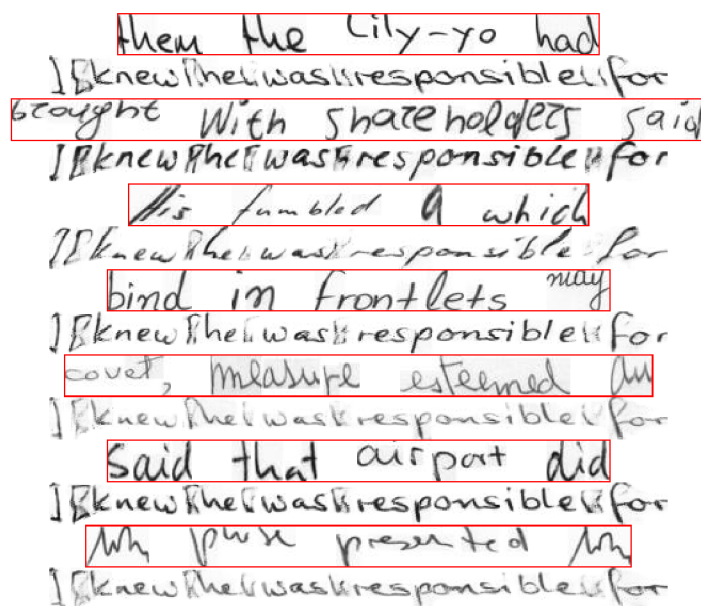 them the Lily-yo had
I knew he was responsible for
brought With shareholders said
I knew he was responsible for
His fumbled a which
I knew he was responsible for
bind in frontlets may
I knew he was responsible for
covet, measure esteemed an
I knew he was responsible for
said that airport did
I knew he was responsible for
presented
I knew he was responsible for